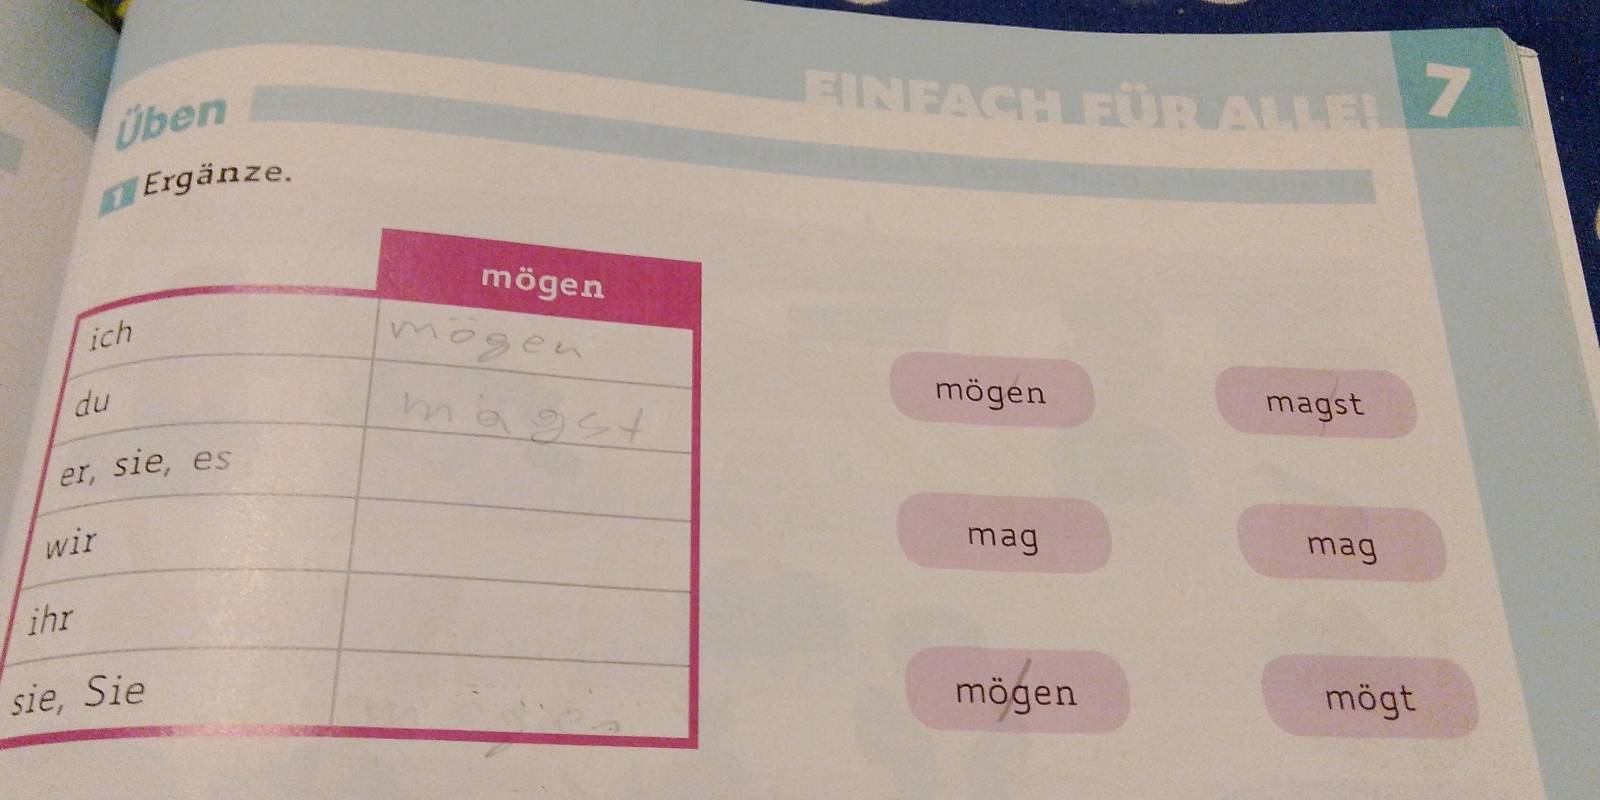 EINFACH FÜR ALLE! 7
Üben
1 Ergänze.
mögen
ich mögen
du magst
er, sie, es
wir
ihr
sie, Sie mögen
mögen magst
mag mag
mögen mögt